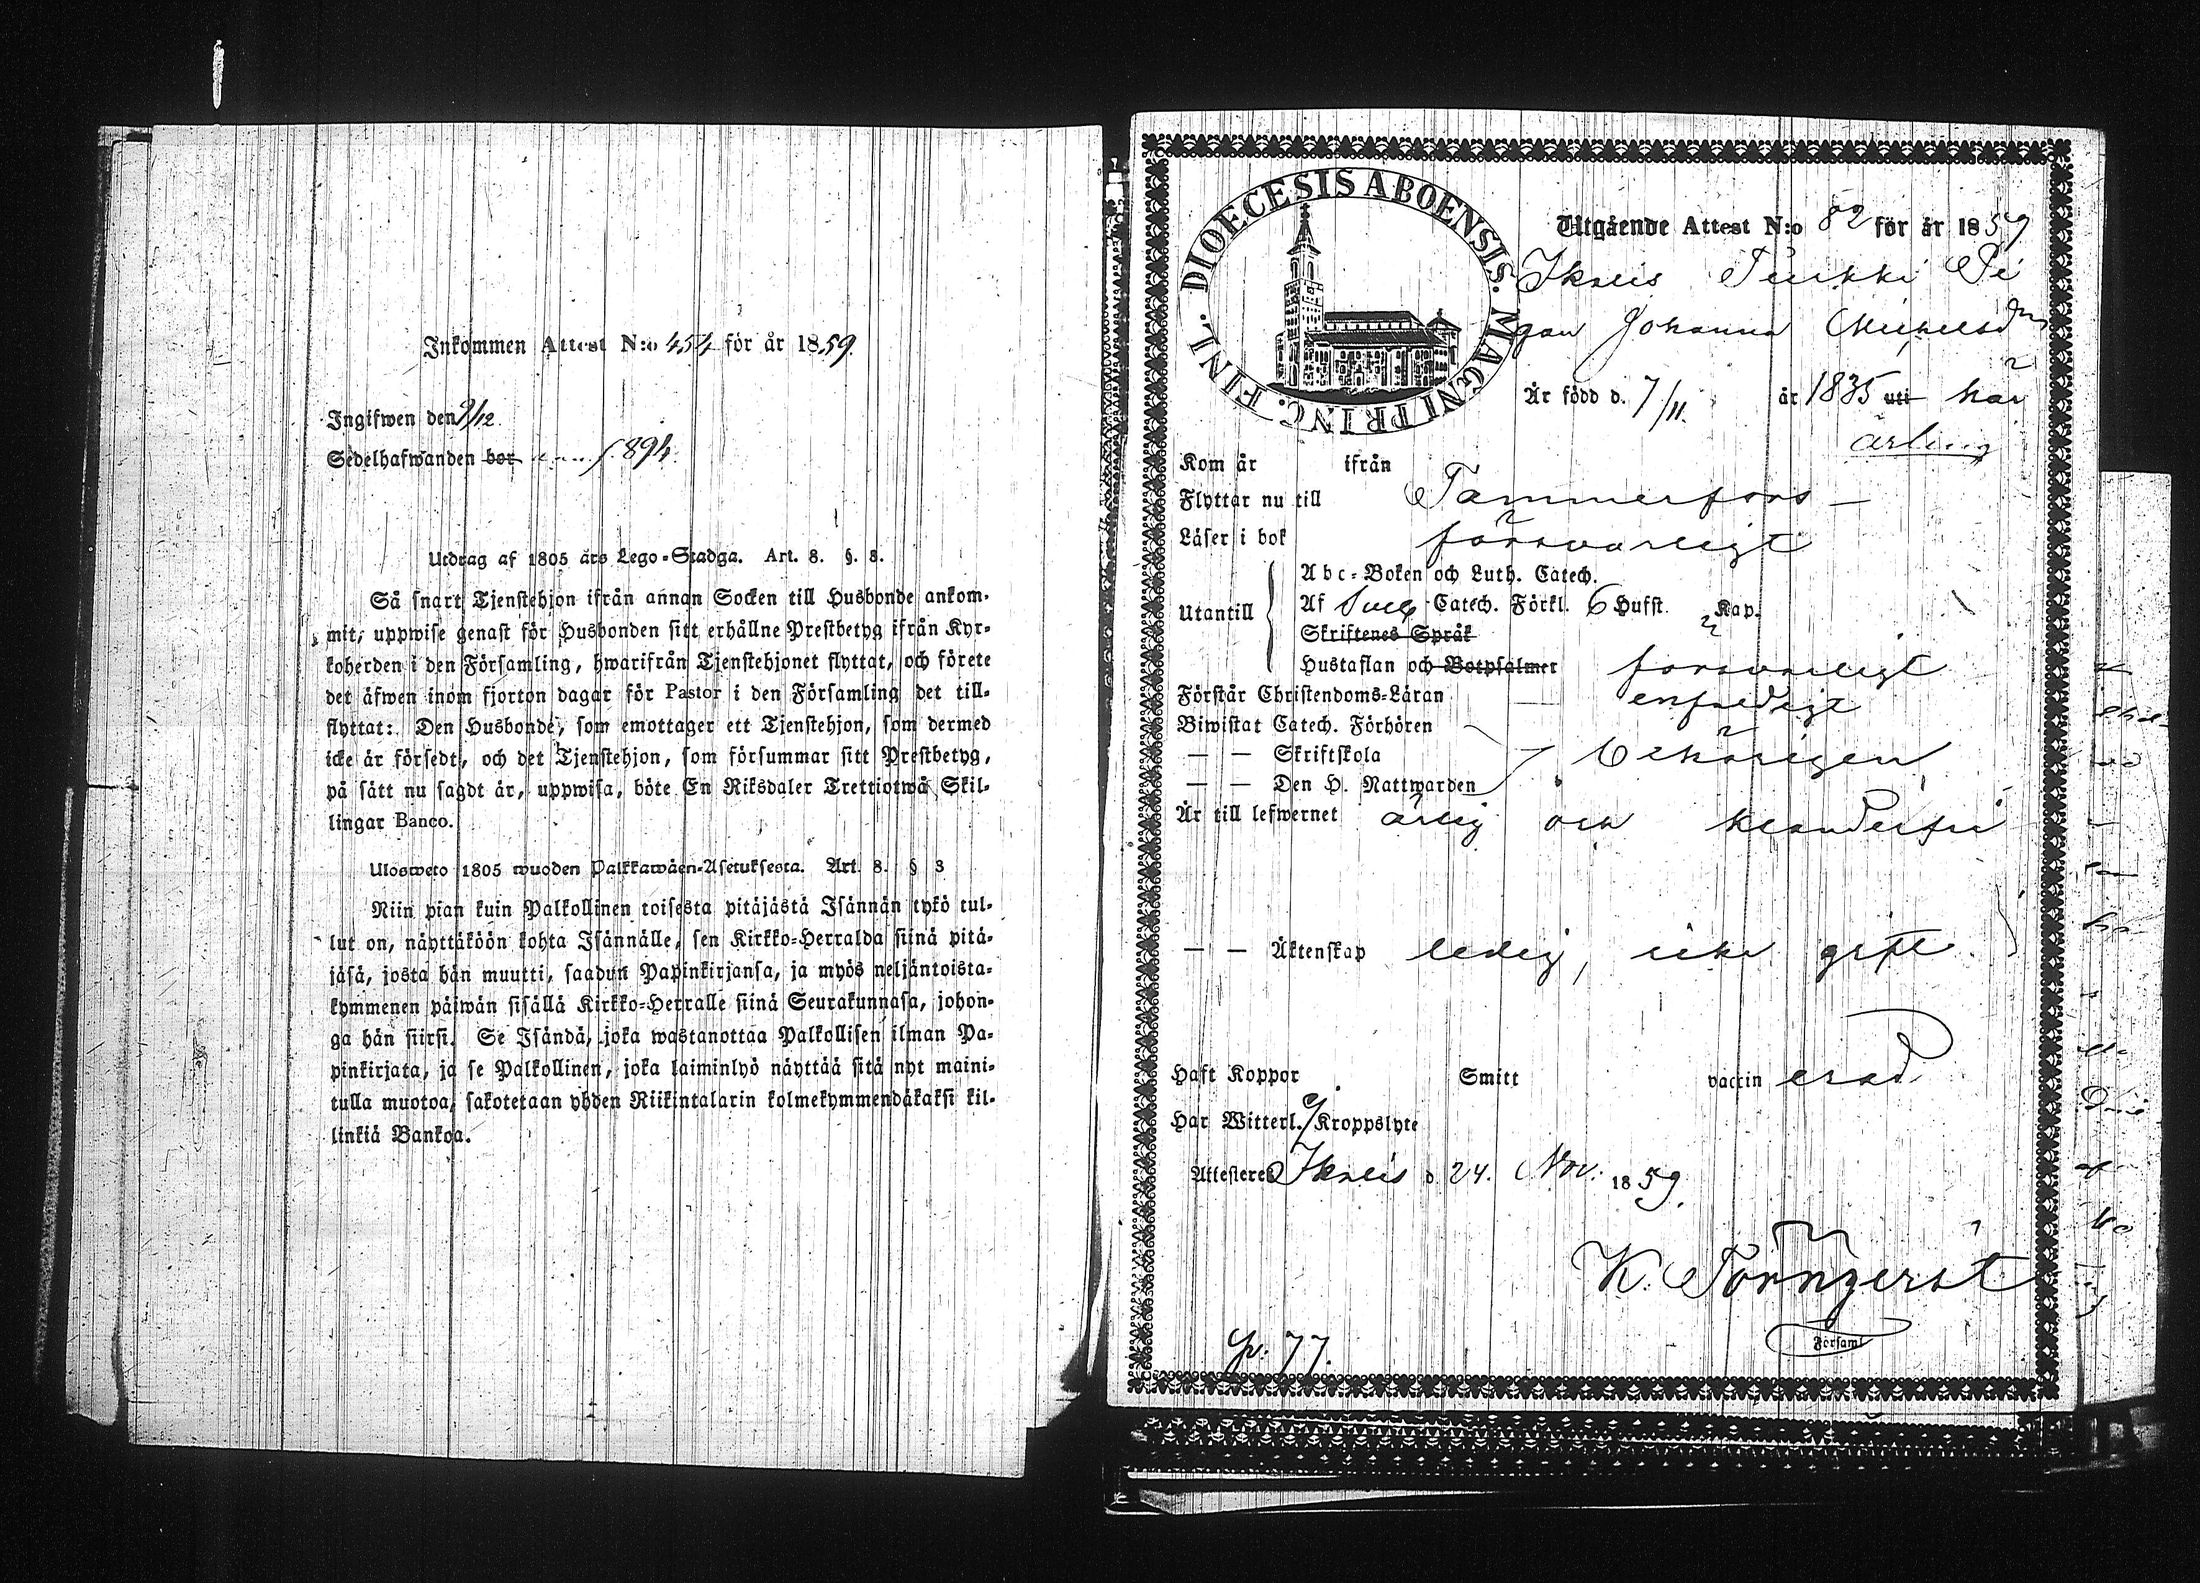 Inkommen Attest N:o 454 för år 1859.
Ingifwen den 9/12.
Sedelhafwanden bor f. 894.
Utdrag af 1805 års Lego-Stadga. Art. 8. §. 8.
Så snart Tjenstehjon ifrån annan Socken till Husbonde ankom-
mit, uppwise genast för Husbonden sitt erhållne Prestbetyg ifrån Kyr-
koherden i den Församling, hwarifrån Tjenstehjonet flyttat, och förete
det äfwen inom fjorton dagar för Pastor i den Församling det till-
flyttat: Den Husbonde, som emottager ett Tjenstehjon, som dermed
icke är försedt, och det Tjenstehjon, som försummar sitt Prestbetyg,
på sätt nu sagdt är, uppwisa, böte En Riksdaler Trettiotwå Skil-
lingar Banco.
Ulosweto 1805 wuoden Palkkawäen-Asetuksesta. Art. 8. § 3
Niin pian kuin Palkollinen toisesta pitäjästä Isännän tykö tul-
lut on, näyttäköön kohta Isännälle, sen Kirkko-Herralda siinä pitä-
jäsä, josta hän muutti, saadun Papinkirjansa, ja myös neljäntoista-
kymmenen päiwän sisällä Kirkko-Herralle siinä Seurakunnasa, johon-
ga hän siirsi. Se Isändä, joka wastanottaa Palkollisen ilman Pa-
pinkirjata, ja se Palkollinen, joka laiminlyö näyttää sitä nyt maini-
tulla muotoa, sakotetaan yhden Riikintalarin kolmekymmendäkaksi kil-
linkiä Bankoa.
DIOECESIS ABOENSIS. MAGNI PRINC. FINL.
Utgående Attest N:o 82 för år 1859
Ikalis Pi
gan Johanna Michelsdr
Är född d. 7/11. år 1835 uti här
ärlig
Kom år ifrån
Flyttar nu till Tammerfors
Läser i bok försvarligt
Abc-Boken och Luth. Catech.
Utantill Af Sveb. Catech. Förkl. 6 Hufst. Kap.
Skriftenes Språk
Hustaflan och Botpsalmer försvarligt
Förstår Christendoms-Läran enfaldigt
Biwistat Catech. Förhören
— — Skriftskola behörigen
— — Den H. Nattwarden
Är till lefwernet ärlig och klanderfri
— — Äktenskap ledig, icke gift.
Haft Koppor Smitt vaccin erad
Har Witterl. Kroppslyte
Attesteres Ikalis d 24. Nov. 1859.
K. Törnqvist
Församl
77.